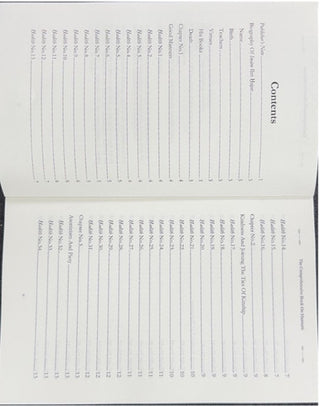 Contents
Publisher's Note
Biography Of Imam Ibn Hajar
Name
Birth
Teachers
Virtues
His Books
Death
Chapter No.1
Good Manners
Hadith No.1
Hadith No.2
Hadith No.3
Hadith No.4
Hadith No.5
Hadith No.6
Hadith No.7
Hadith No.8
Hadith No.9
Hadith No.10
Hadith No.11
Hadith No.12
Hadith No.13
The Comprehensive Book On Manners
Hadith No.14 7
Hadith No.15 7
Hadith No.16 8
Chapter No.2 9
Kindness And Joining The Ties Of Kinship 9
Hadith No.17 9
Hadith No.18 9
Hadith No.19 9
Hadith No.20 9
Hadith No.21 10
Hadith No.22 10
Hadith No.23 10
Hadith No.24 11
Hadith No.25 11
Hadith No.26 11
Hadith No.27 11
Hadith No.28 11
Hadith No.29 12
Hadith No.30 12
Hadith No.31 12
Chapter No.3 13
Asceticism And Piety 13
Hadith No.32 13
Hadith No.33 13
Hadith No.34 13